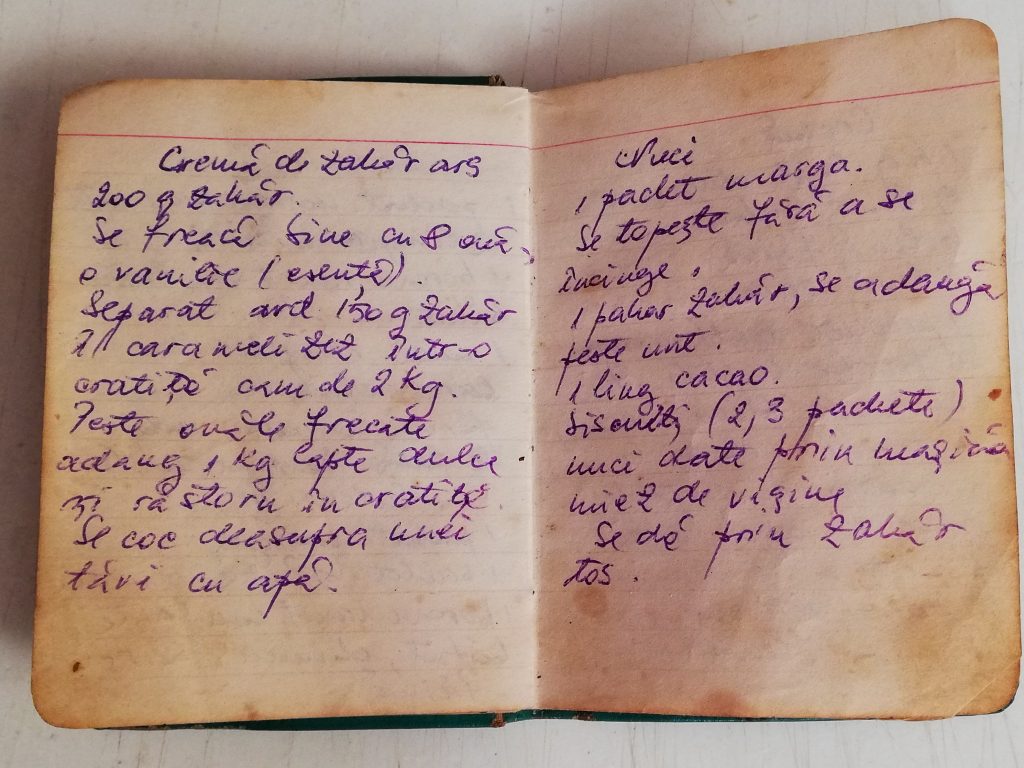 Cremă de zahăr ars
200 g zahăr.
Se freacă bine cu 8 ouă,
o vanilie (esență)
Separat ard 150 g zahăr
îl caramelizez într-o
cratiță cam de 2 Kg.
Peste ouăle frecate
adaug 1 Kg lapte dulce
și răstorn în cratiță.
Se coc deasupra unei
tăvi cu apă.
Nuci
1 pachet marga.
Se topește fără a se
încinge,
1 pahar zahăr, se adaugă
peste unt.
1 ling cacao.
biscuiți (2, 3 pachete)
nuci date prin mașină
miez de vișine
Se dă prin zahăr
tos.